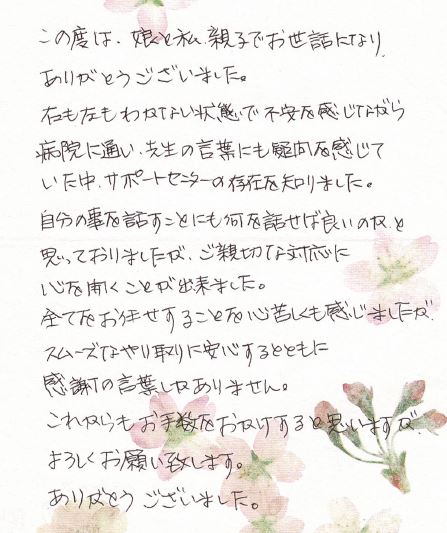 この度は、娘と私、親子でお世話になり
ありがとうございました。
右も左もわからない状態で不安を感じながら
病院に通い、先生の言葉にも疑問を感じて
いた中、サポートセンターの存在を知りました。
自分の事を話すことにも何を話せば良いのか、と
思っておりましたが、ご親切な対応に
心を開くことが出来ました。
全てをお任せすることを心苦しくも感じましたが、
スムーズなやり取りに安心するとともに
感謝の言葉しかありません。
これからもお手数をおかけすると思いますが
よろしくお願い致します。
ありがとうございました。